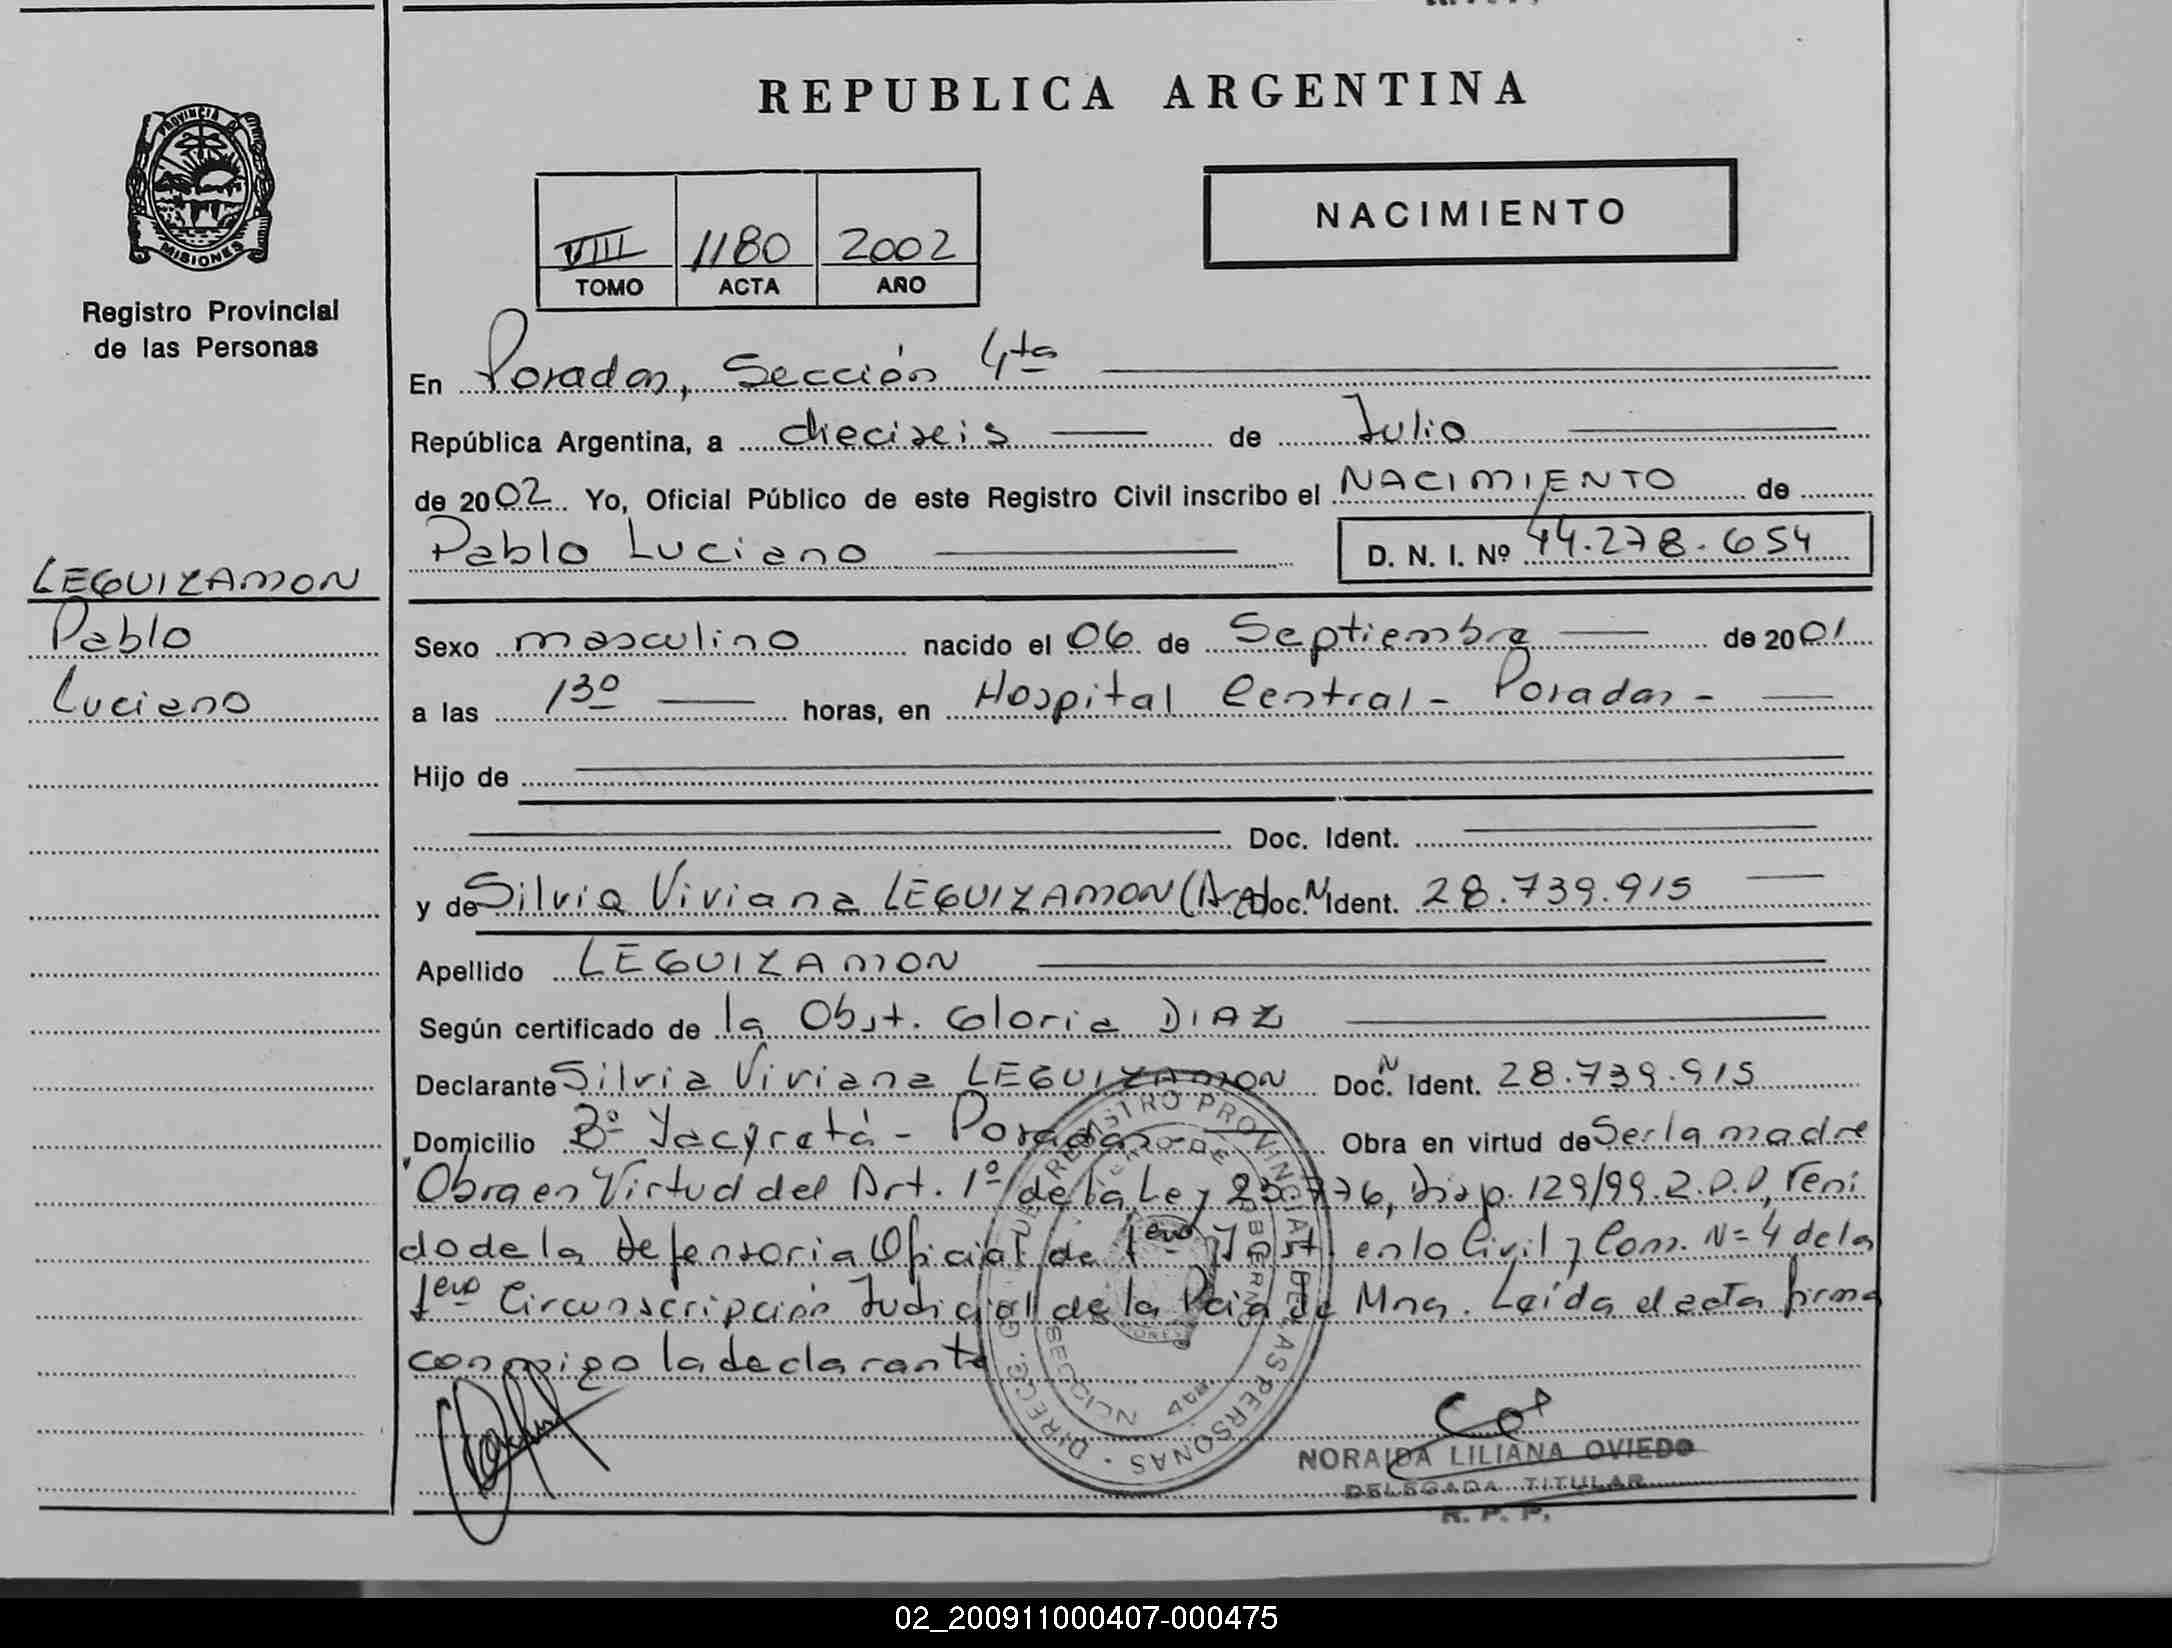 REPUBLICA ARGENTINA
PROVINCIA DE
MISIONES
Registro Provincial
de las Personas
VIII 1180 2002
TOMO ACTA AÑO
NACIMIENTO
En Posadas, Sección 4ta
República Argentina, a dieciseis de Julio
de 2002 Yo, Oficial Público de este Registro Civil inscribo el NACIMIENTO de
Pablo Luciano D. N. I. Nº 44.278.654
LEGUIZAMON
Pablo
Luciano
Sexo masculino nacido el 06 de Septiembre de 2001
a las 13º horas, en Hospital Central - Posadas -
Hijo de
Doc. Ident.
y de Silvia Viviana LEGUIZAMON (Arg) Doc. N Ident. 28.739.915
Apellido LEGUIZAMON
Según certificado de la Obst. Gloria DIAZ
Declarante Silvia Viviana LEGUIZAMON Doc. N Ident. 28.739.915
Domicilio Bº Yacyretá - Posadas - Obra en virtud de Ser la madre
Obra en Virtud del Art. 1º de la Ley 23.776, Disp. 129/99.R.P.P, Veni
do de la Defensoria Oficial de 1era Inst. en lo Civil y Com. N=4 de la
1era Circunscripción Judicial de la Pcia de Mnes. Leída el acta firma
conmigo la declarante
DIRECC. G. DE REGISTRO PROVINCIAL DE LAS PERSONAS
DE GOBIERNO
SECCION 4ta
NORAIDA LILIANA OVIEDO
DELEGADA TITULAR
R. P. P.
02_200911000407-000475